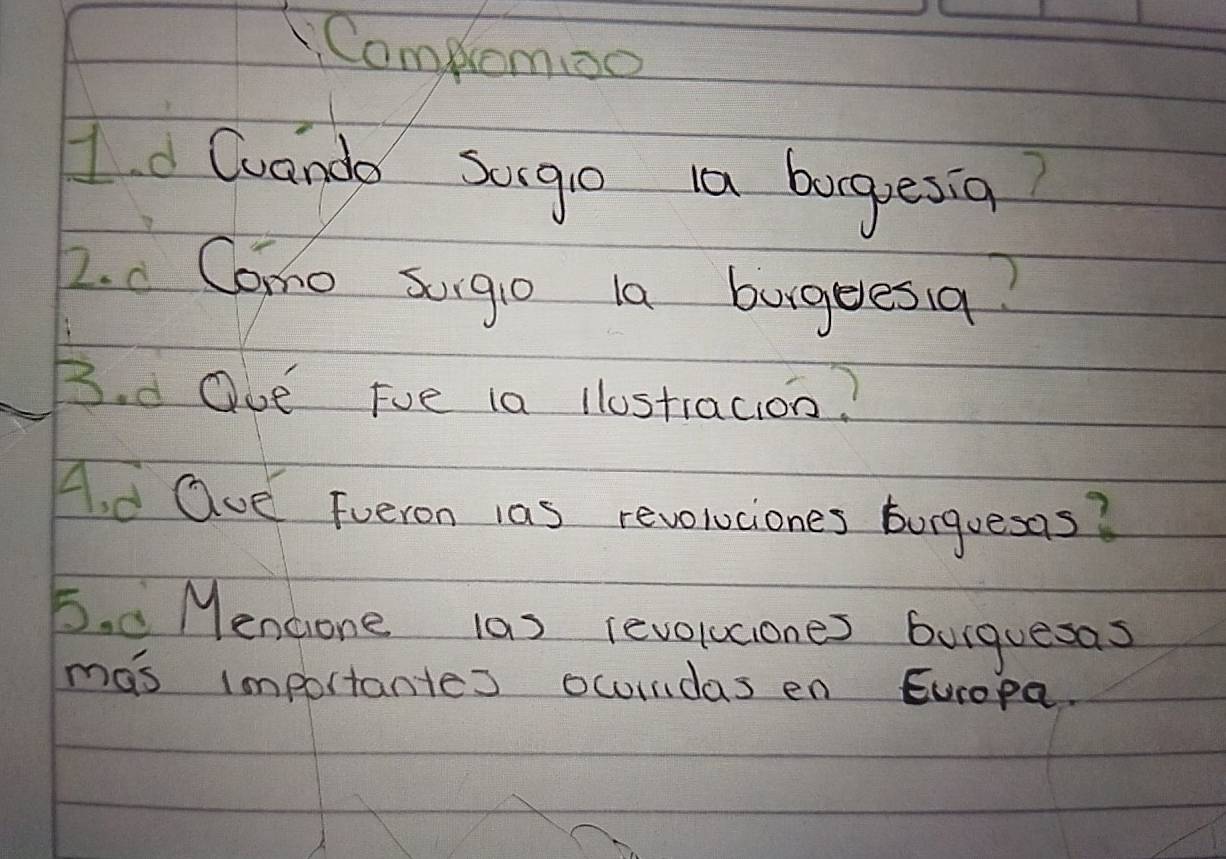 Compromiso
1. ¿Cuándo surgio la burguesía?
2. ¿Cómo surgio la burguesia?
3. ¿Qué Fue la ilustración?
4. ¿Qué Fueron las revoluciones burguesas?
5. ¿Mencione las revoluciones burguesas
más importantes ocurridas en Europa.